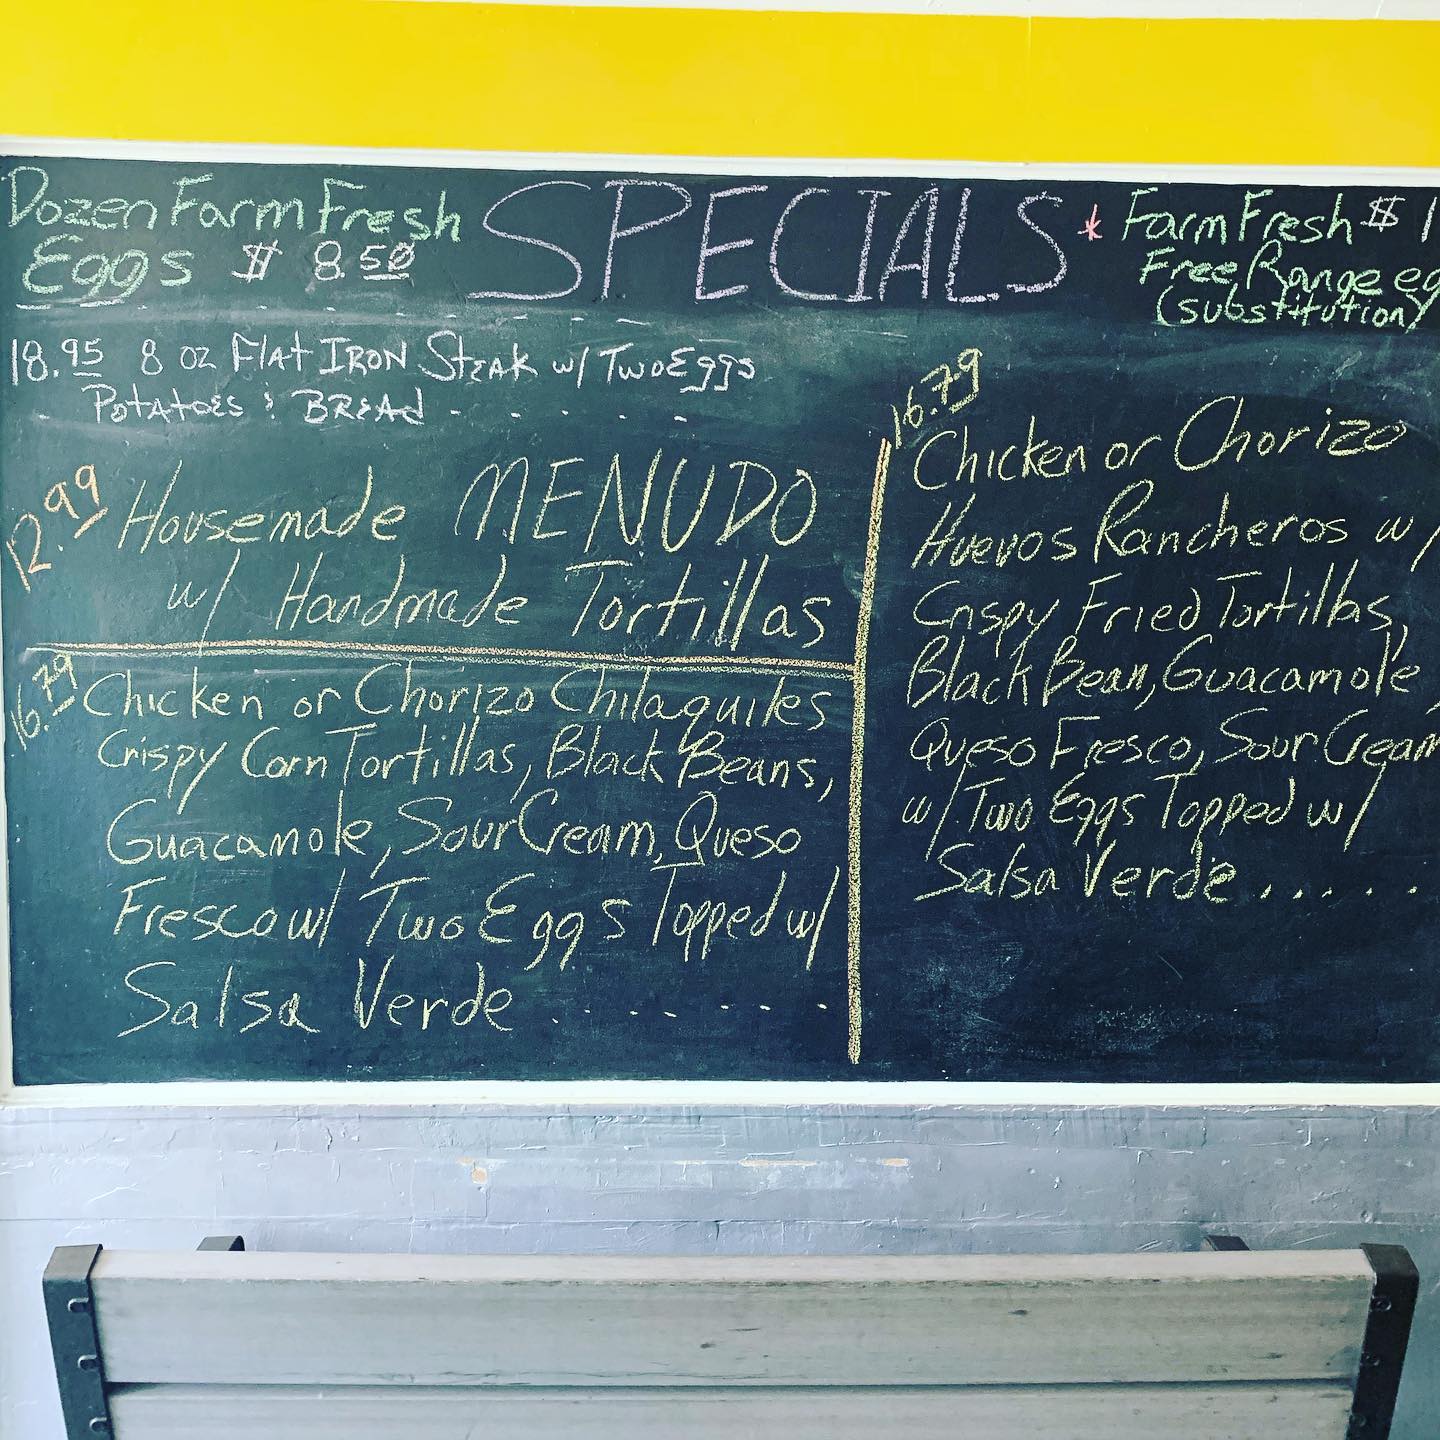 Dozen Farm Fresh
Eggs $ 8.50
SPECIALS
* Farm Fresh $ 1
Free Range eg
(substitution)
18.95 8 oz Flat IRON Steak w/ Two Eggs
Potatoes & BREAd - - - - - -
12.99 Housemade MENUDO
w/ Handmade Tortillas
16.79 Chicken or Chorizo Chilaquiles
Crispy Corn Tortillas, Black Beans,
Guacamole, Sour Cream, Queso
Fresco w/ Two Eggs Topped w/
Salsa Verde . . . . . . .
16.79
Chicken or Chorizo
Huevos Rancheros w/
Crispy Fried Tortillas,
Black Bean, Guacamole,
Queso Fresco, Sour Cream
w/ Two Eggs Topped w/
Salsa Verde . . . . .